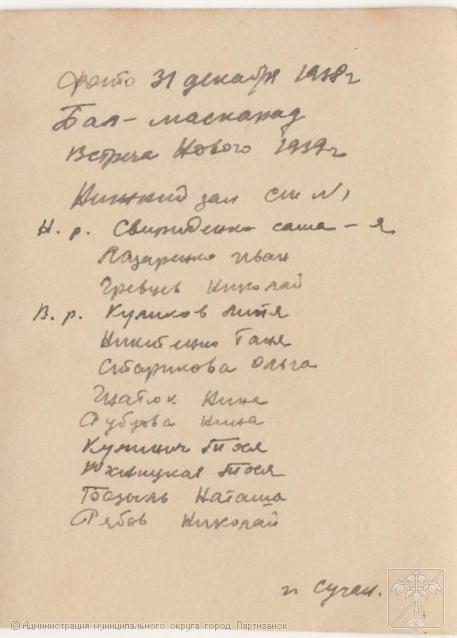 Фото 31 декабря 1938 г
Бал-маскарад
Встреча Нового 1939 г
Нижний зал сш №1
Н. р. Свириденко Саша - я
Назаренко Иван
Гревцев Николай
В. р. Куликов Митя
Никитенко Таня
Старикова Ольга
Игнатюк Нина
Рубцова Нина
Кулинич Тося
Южницкая Тося
Николай
Наташа
Рябов Николай
г. Сучан.
© Администрация муниципального округа город Партизанск